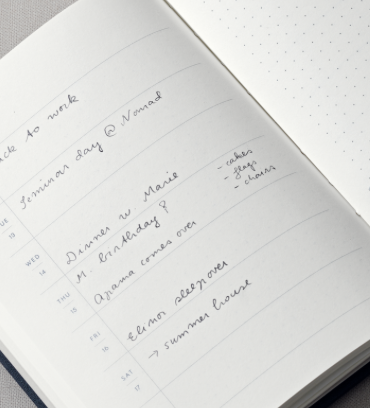 ck to work
UE
13
Seminar day @ Nomad
WED
14
Dinner w. Marie
M. birthday ?
- cakes
- flags
- chairs
THU
15
comes over
FRI
16
Elinor sleepover
SAT
17
→ summer house